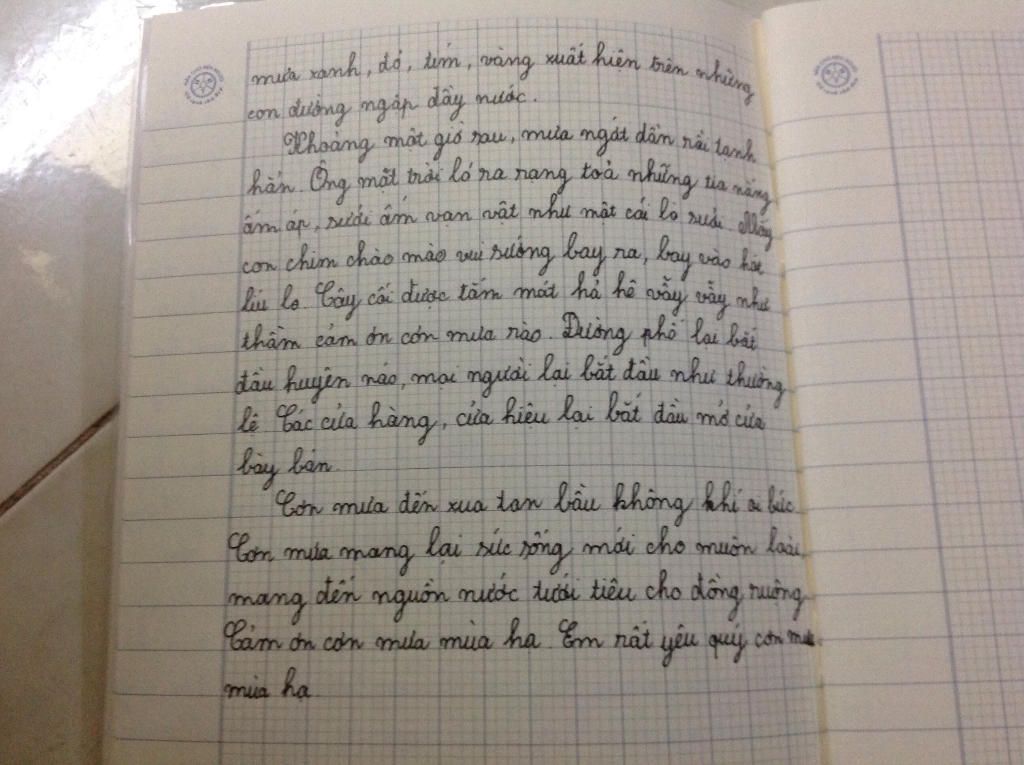 mưa xanh, đỏ, tím, vàng xuất hiện trên những
con đường ngập đầy nước.
Khoảng một giờ sau, mưa ngớt dần rồi tạnh
hẳn. Ông mặt trời ló ra rạng toả những tia nắng
ấm áp, sưởi ấm vạn vật như một cái lò sưởi. Mấy
con chim chào mào vui sướng bay ra, bay vào hót
líu lo. Cây cối được tắm mát hả hê vẫy vẫy như
thầm cảm ơn cơn mưa rào. Đường phố lại bắt
đầu huyên náo, mọi người lại bắt đầu như thường
lệ. Các cửa hàng, cửa hiệu lại bắt đầu mở cửa
bày bán.
Cơn mưa đến xua tan bầu không khí oi bức.
Cơn mưa mang lại sức sống mới cho muôn loài,
mang đến nguồn nước tưới tiêu cho đồng ruộng.
Cảm ơn cơn mưa mùa hạ. Em rất yêu quý cơn mưa
mùa hạ